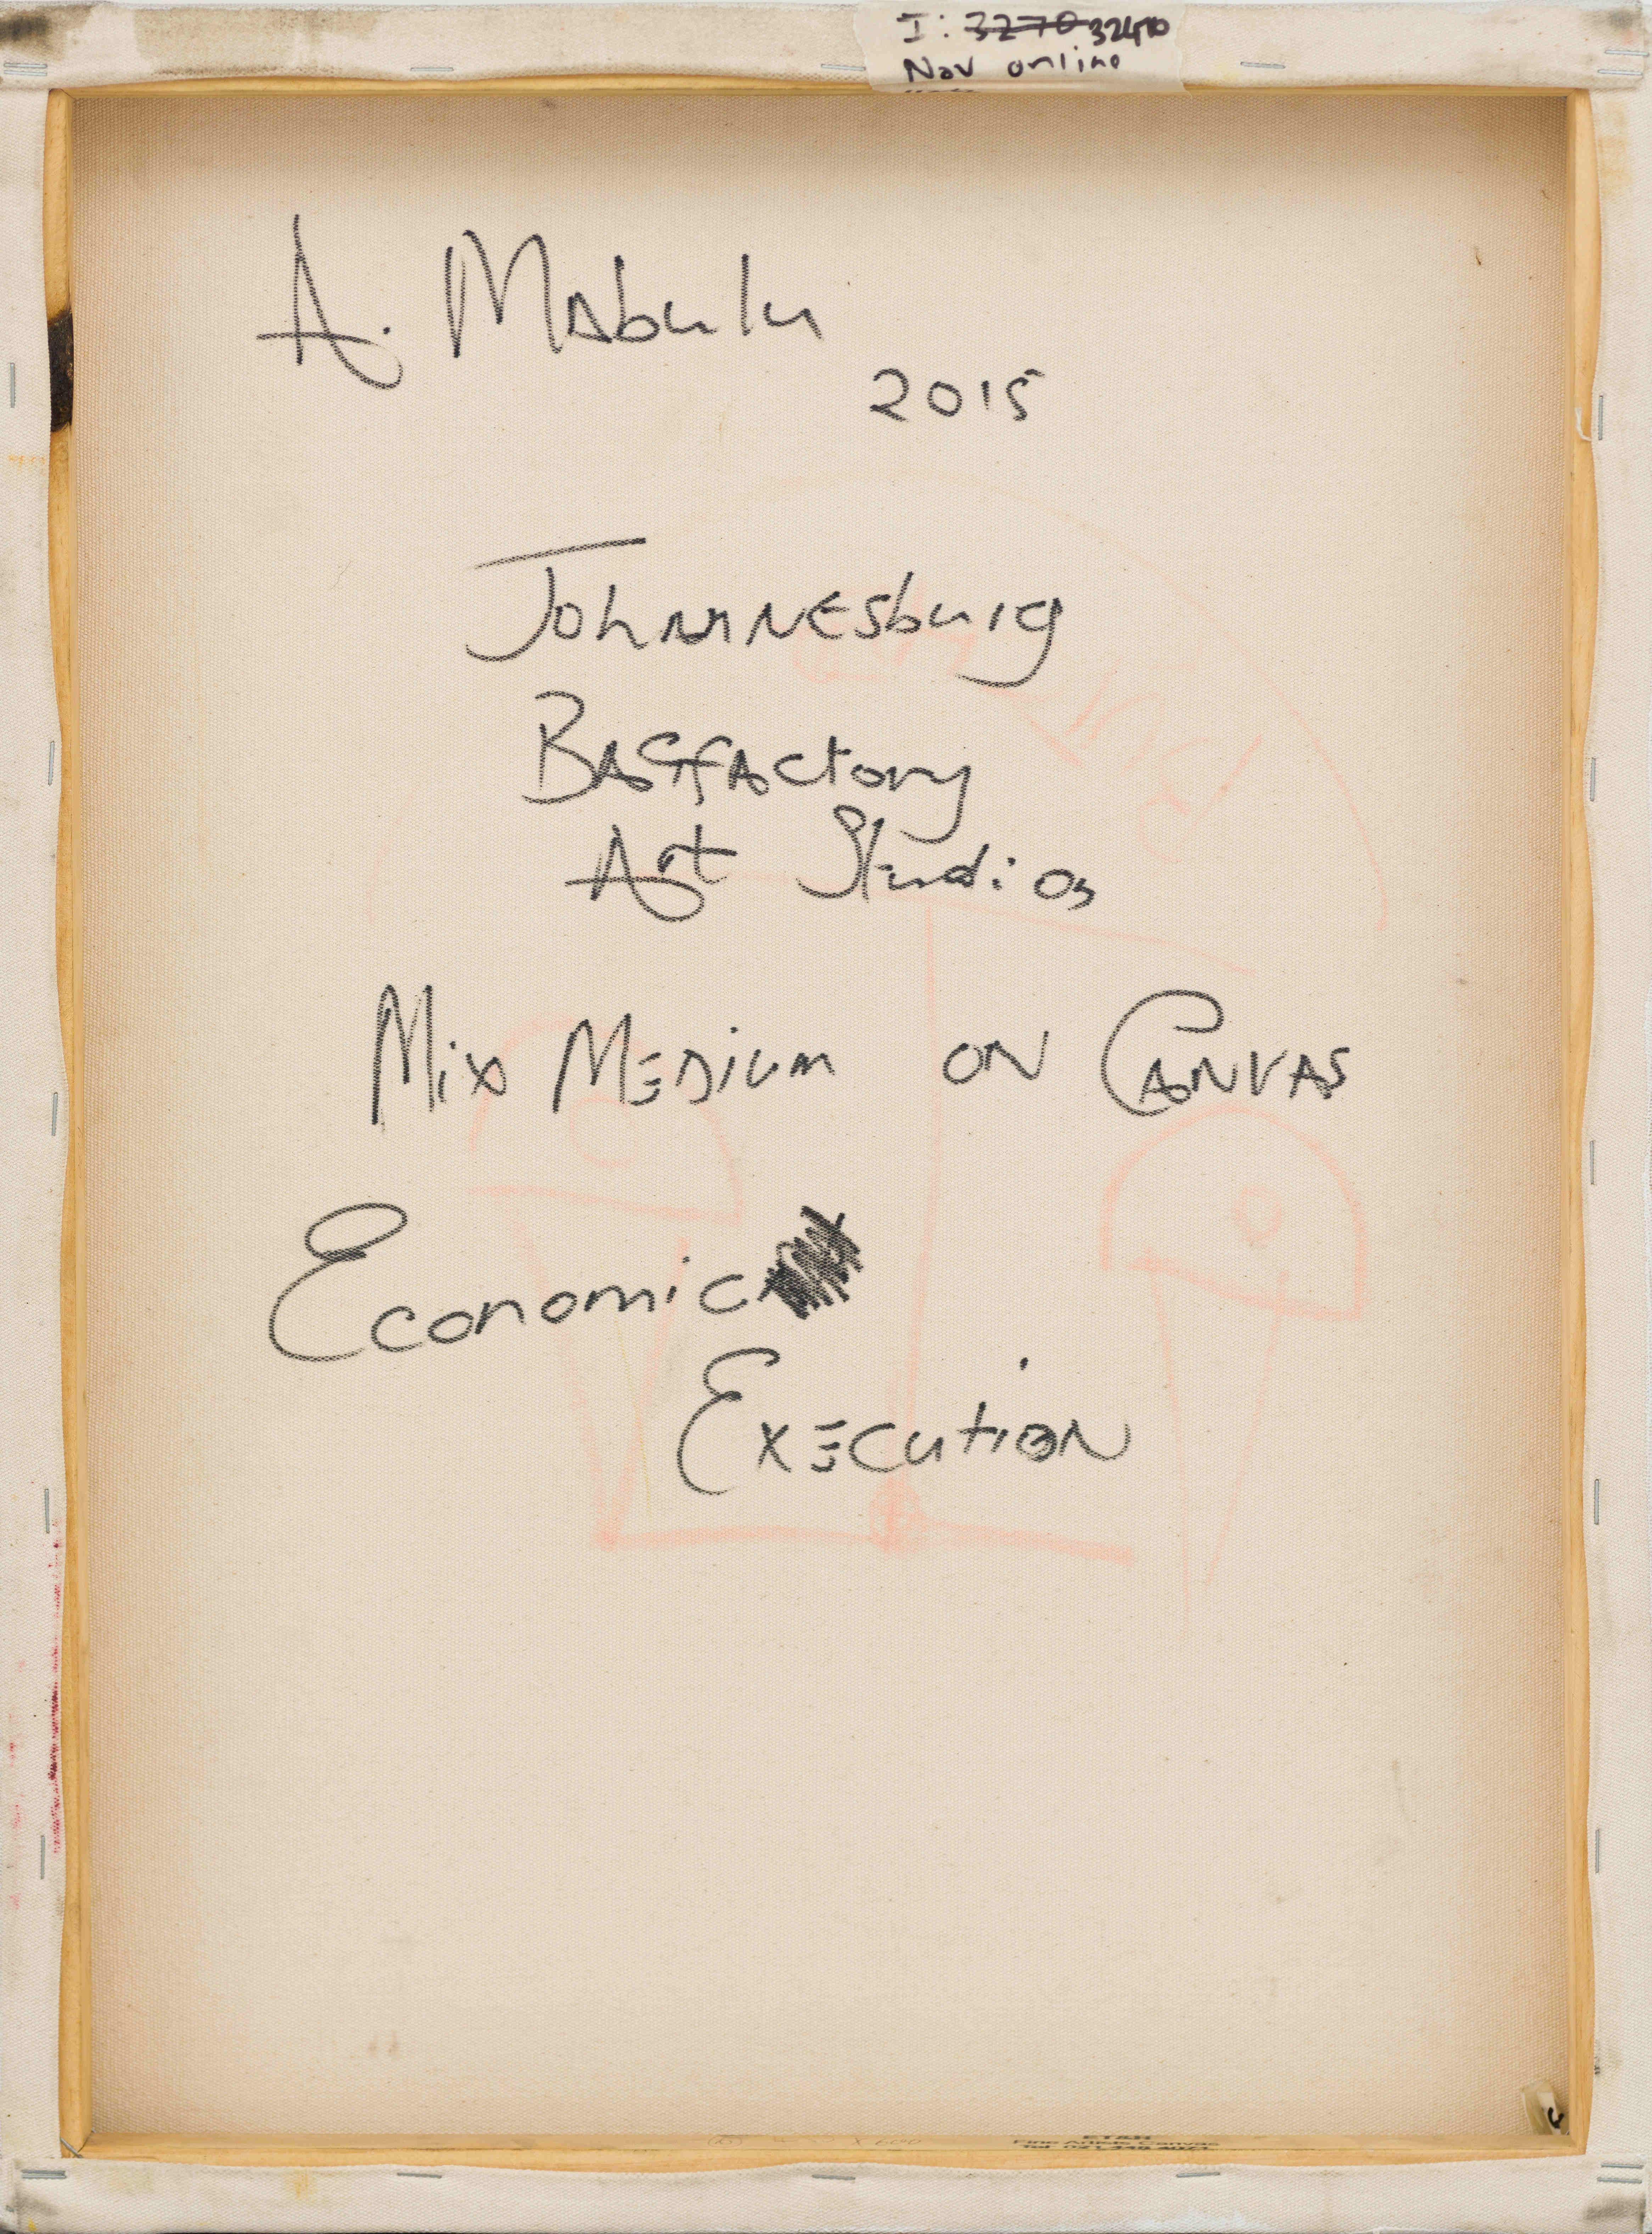 I: 3270 32470
Nov online
A. Mabulu
2015
Johannesburg
Bagfactory
Art Studios
Mix Medium on Canvas
Economic
Execution
ETAR
Fine Artists Canvas